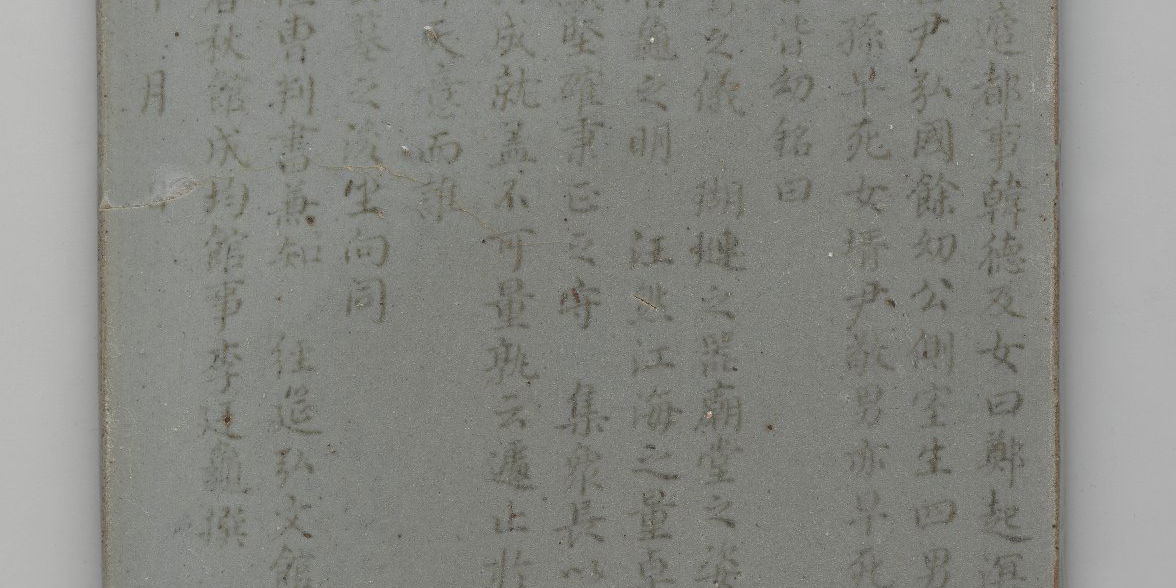 適都事韓德及女曰鄭起溟
尹弘國餘幼公側室生四男
孫早死女壻尹敬男亦早死
皆幼銘曰
之儀 瑚璉之器廟堂之姿
龜之明 汪然江海之量
堅確秉正之守 集衆長以
成就盖不可量孰云遽止於
天意而誰
墓之後坐向同
曺判書兼知 經筵弘文館
春秋館成均館事李廷龜撰
月